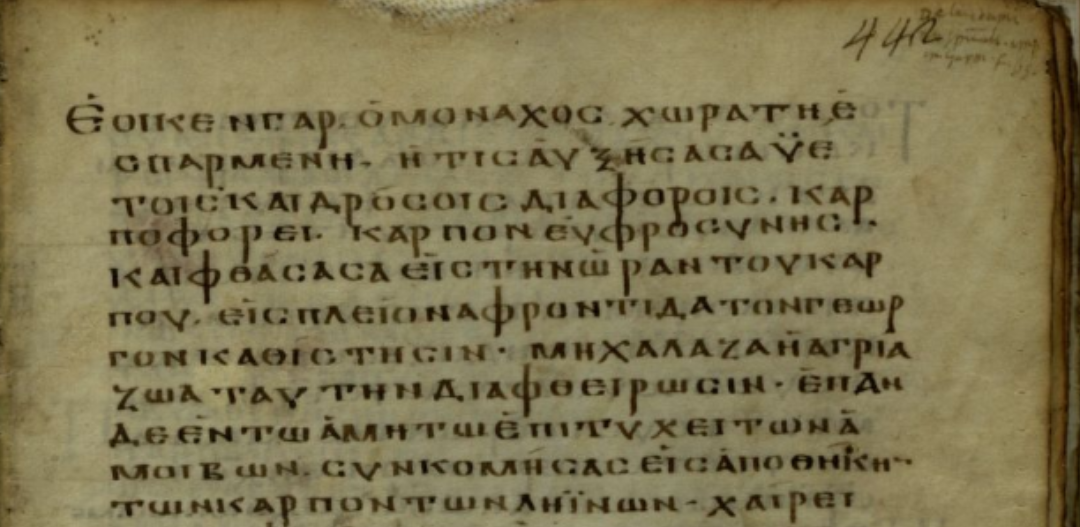 44
Ἐοικεν γαρ. ὁ μοναχος χωρα τῃ ἐ
σπαρμενη. ἡτις ἀυξησασα ϋε
τοις και δροσοις διαφοροις. καρ
ποφορει. καρπον ἐυφροσυνης.
και φθασασα εἰς την ὡραν του καρ
που. εἰς πλειονα φροντιδα τον γεωρ
γον καθιστησιν. μη χαλαζα ἠ αγρια
ζωα ταυτην διαφθειρωσιν. ἐπαν
δε ἐν τω ἀμητω ἐπιτυχει των ἀ
μοιβων. συνκομησας εἰς ἀποθηκη
των καρπον των ληϊνων. χαιρει